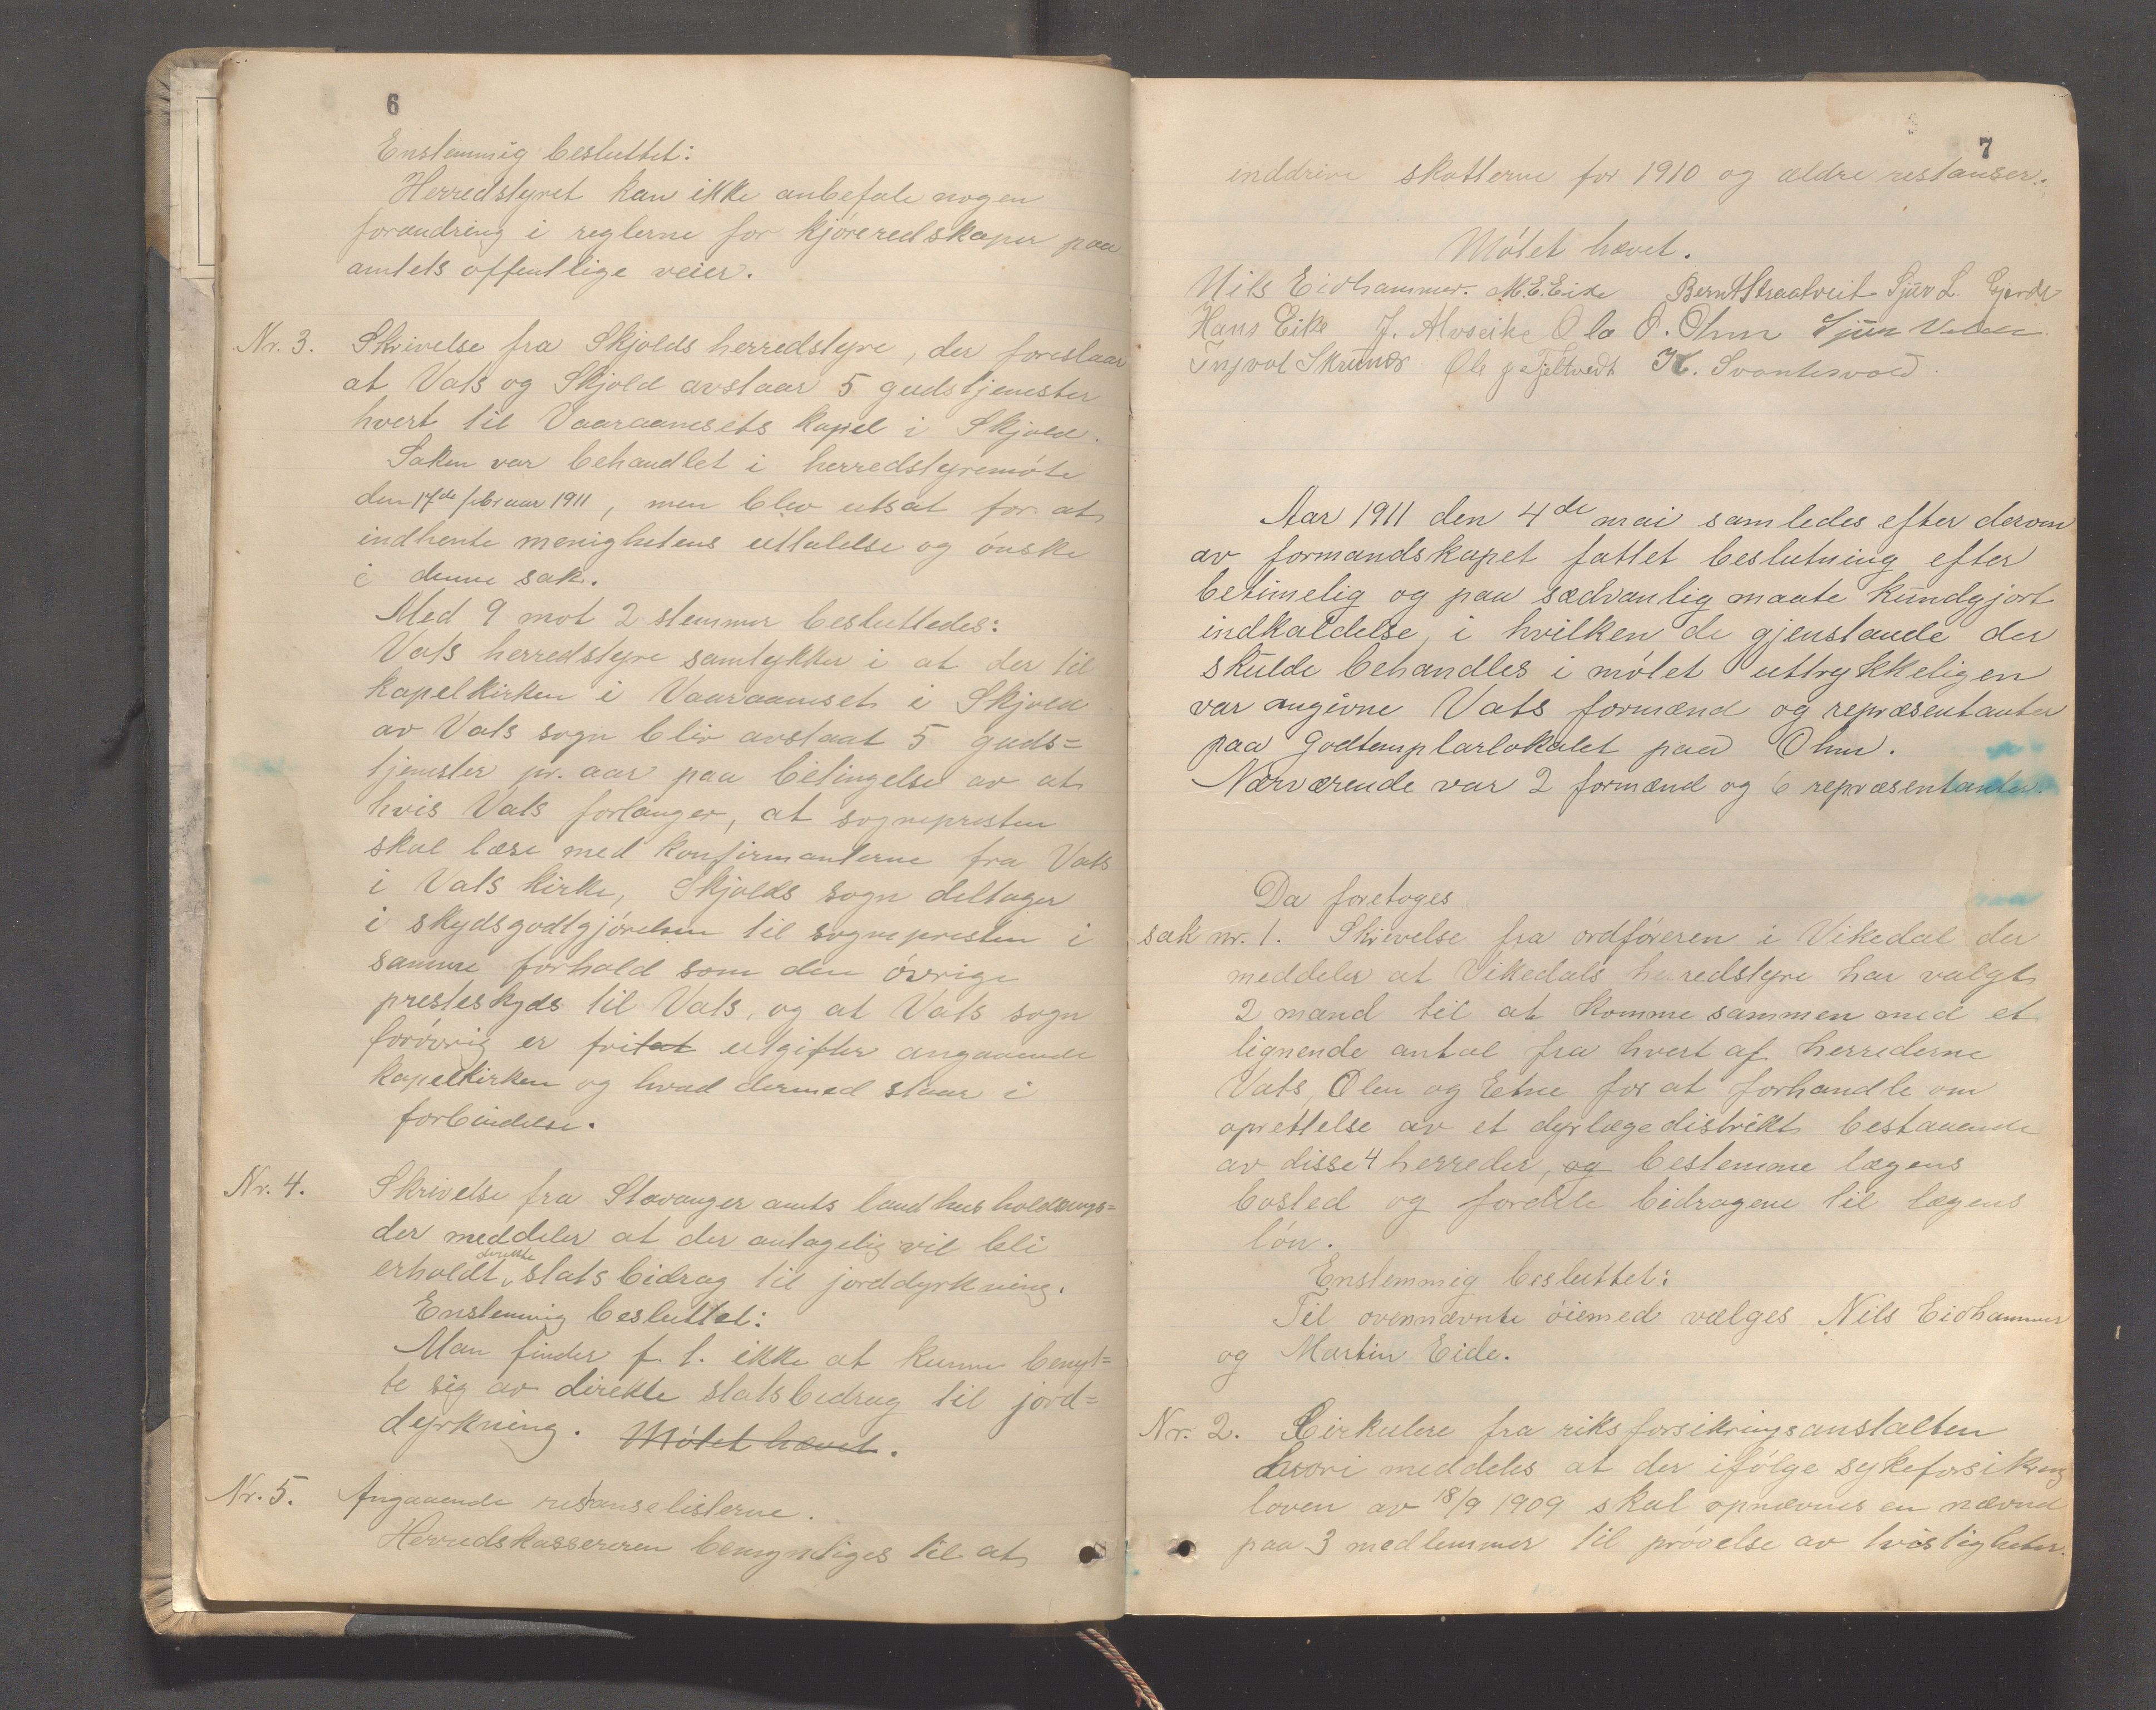 6
Enstemmig besluttet:
Herredstyret kan ikke anbefale nogen
forandring i reglerne for kjøreredskaper paa
amtets offentlige veier.
Nr. 3. Skrivelse fra Skjolds herredstyre, der foreslaar
at Vats og Skjold avstaar 5 gudstjenester
hvert til Vaaraamsets kapel i Skjold.
Saken var behandlet i herredstyremøte
den 17de februar 1911, men blev utsat for at
indhente menighetens uttalelse og ønske
i denne sak.
Med 9 mot 2 stemmer besluttedes:
Vats herredstyre samtykker i at der til
kapelkirken i Vaaraamset i Skjold
av Vats sogn bliv avstaat 5 guds=
tjenester pr. aar paa betingelse av at
hvis Vats forlanger, at sognepresten
skal læse med konfirmanterne fra Vats
i Vats kirke, Skjolds sogn deltager
i skydsgodtgjørelsen til sognepresten i
samme forhold som den øvrige
presteskyds til Vats, og at Vats sogn
forøvrig er fritat utgifter angaaende
kapelkirken og hvad dermed staar i
forbindelse.
Nr. 4. Skrivelse fra Stavanger amts landhusholdnings=
der meddeler at der antagelig vil bli
direkte
erholdt statsbidrag til jorddyrkning.
Enstemmig besluttet:
Man finder f. t. ikke at kunne benyt=
te sig av direkte statsbidrag til jord=
dyrkning. Møtet hævet.
Nr. 5. Angaaende restanselisterne.
Herredskassereren bemyndiges til at
7
inddrive skatterne for 1910 og ældre restanser.
Møtet hævet.
Nils Eidhammer. M. E. Eide Bernt Straatveit Sjur L. Gjerde
Hans Eike J. Alvseike Ola O. Ohm Sjur
Ingval Skrunes Ole J. Fjeltvedt K. Svantesvold.
Aar 1911 den 4de mai samledes efter derom
av formandskapet fattet beslutning efter
betimelig og paa sædvanlig maate kundgjort
indkaldelse, i hvilken de gjenstande der
skulde behandles i møtet uttrykkeligen
var angivne Vats formænd og repræsentanter
paa Godtemplarlokalet paa Ohm.
Nærværende var 2 formænd og 6 repræsentanter.
Da foretoges
sak nr. 1. Skrivelse fra ordføreren i Vikedal der
meddeler at Vikedals herredstyre har valgt
2 mand til at komme sammen med et
lignende antal fra hvert af herrederne
Vats, Ølen og Etne for at forhandle om
oprettelse av et dyrlægedistrikt bestaaende
av disse 4 herreder, og bestemme lægens
bosted og fordele bidragene til lægens
løn.
Enstemmig besluttet:
Til ovennævnte øiemed vælges Nils Eidhammer
og Martin Eide.
Nr. 2. Cirkulere fra riksforsikringsanstalten
hvori meddeles at der ifølge sykeforsikring
loven av 18/9 1909 skal opnævnes en nævnd
paa 3 medlemmer til prøvelse av tvistigheter.